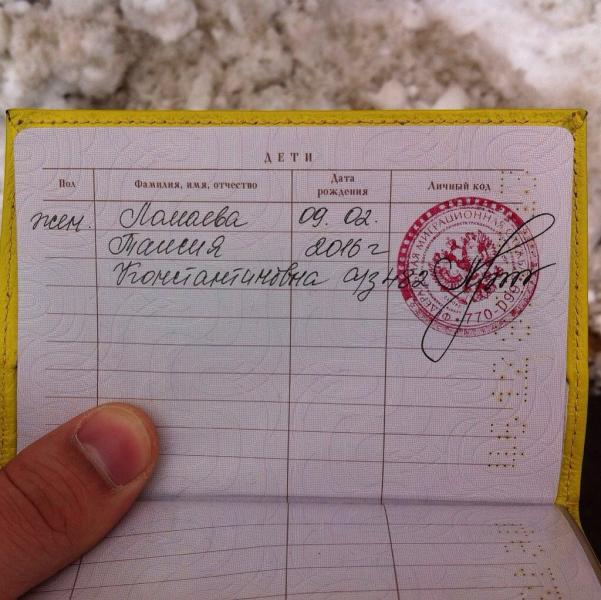 ДЕТИ
Пол Фамилия, имя, отчество Дата рождения Личный код
жен. Ломаева 09. 02.
Таисия 2016 г
Константиновна а/з 482
ФЕДЕРАЛЬНАЯ МИГРАЦИОННАЯ СЛУЖБА